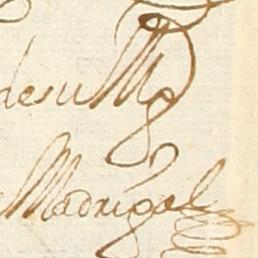 de su Mg
Madrigal